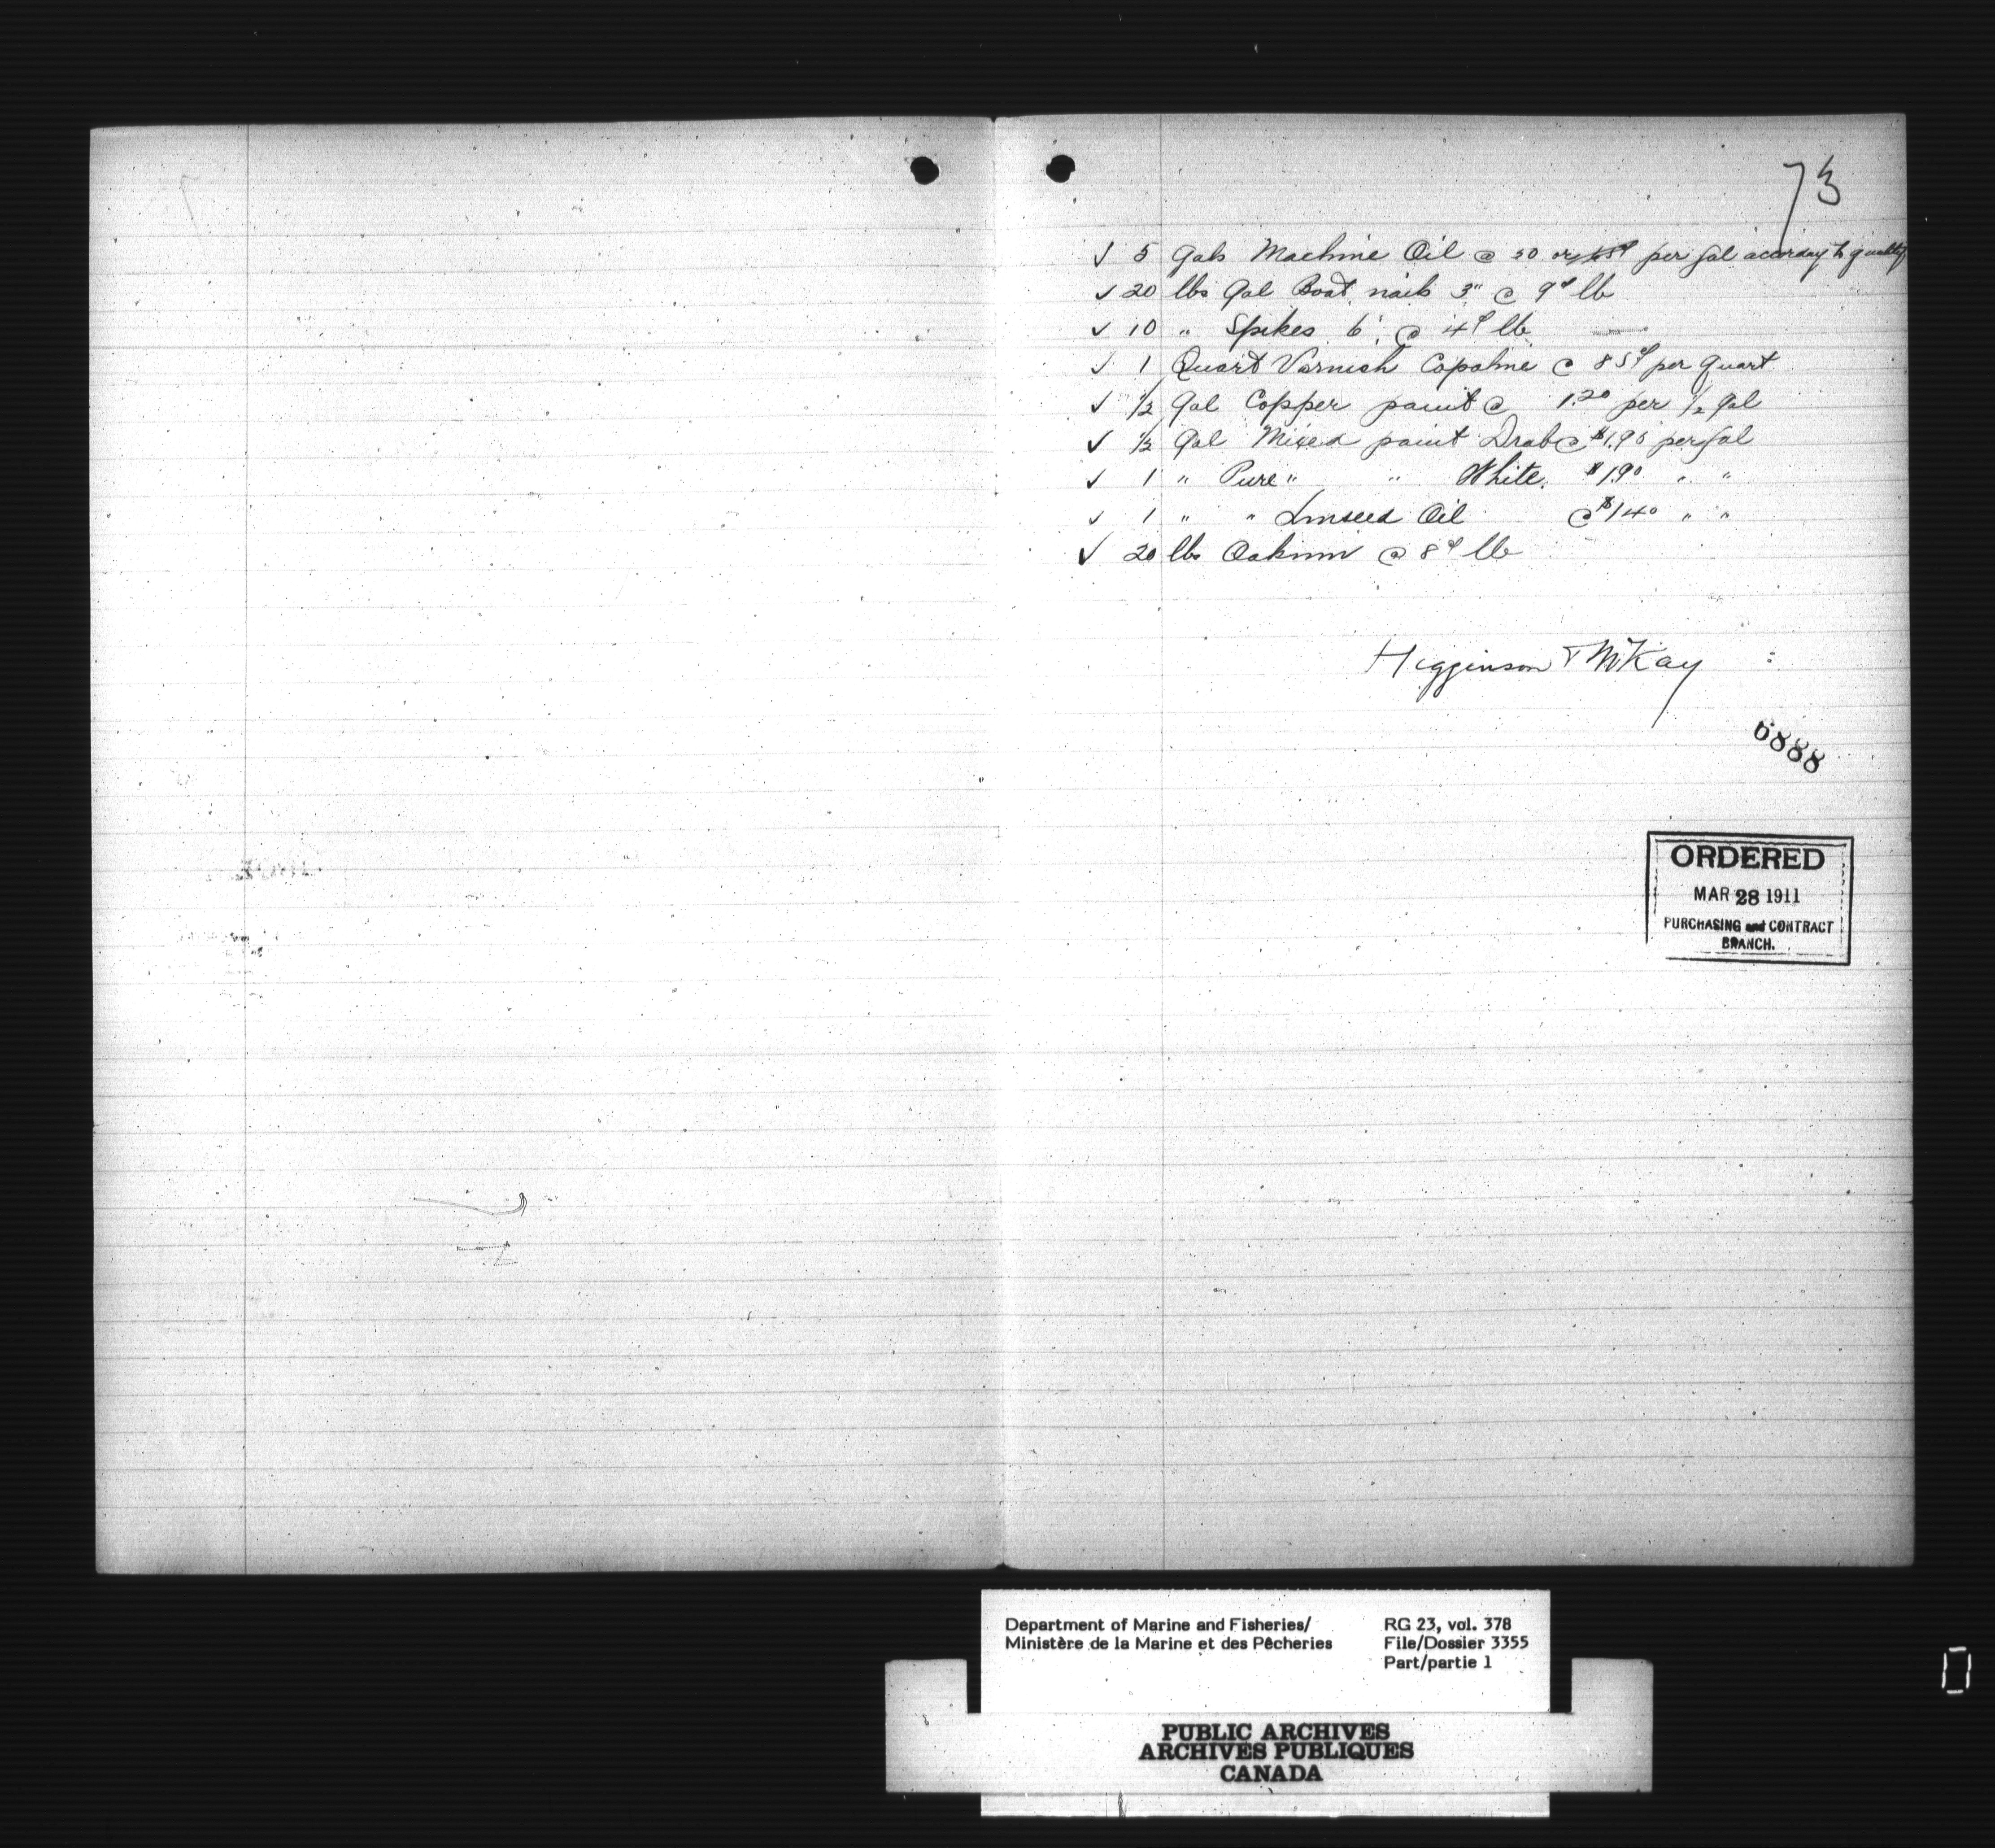 73
✓ 5 Gals Machine Oil @ 50 or per Gal according to quality
✓ 20 lbs Gal Boat nails 3" @ 9¢ lb
✓ 10 " Spikes 6" @ 4¢ lb
✓ 1 Quart Varnish Copaline @ 85¢ per Quart
✓ 1/2 Gal Copper paint @ 1.20 per 1/2 Gal
✓ 1/2 Gal Mixed paint Drab @ $1.90 per Gal
✓ 1 " Pure " " White. $1.90 " "
✓ 1 " " Linseed Oil @ $1.40 " "
✓ 20 lbs Oakum @ 8¢ lb
Higginson & McKay
6888
ORDERED
MAR 28 1911
PURCHASING and CONTRACT
BRANCH.
Department of Marine and Fisheries/
Ministère de la Marine et des Pêcheries
RG 23, vol. 378
File/Dossier 3355
Part/partie 1
PUBLIC ARCHIVES
ARCHIVES PUBLIQUES
CANADA